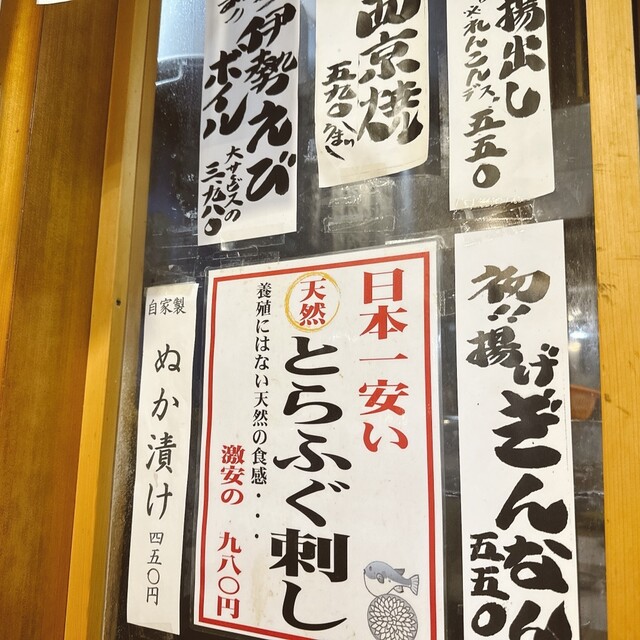 揚出し
れんこんデス
五五〇
西京焼
五九〇
うまい
伊勢えび
ボイル
大サービスの
三、九八〇
初!!揚げぎんなん
五五〇
日本一安い
天然
とらふぐ刺し
養殖にはない天然の食感・・・
激安の 九八〇円
自家製
ぬか漬け
四五〇円